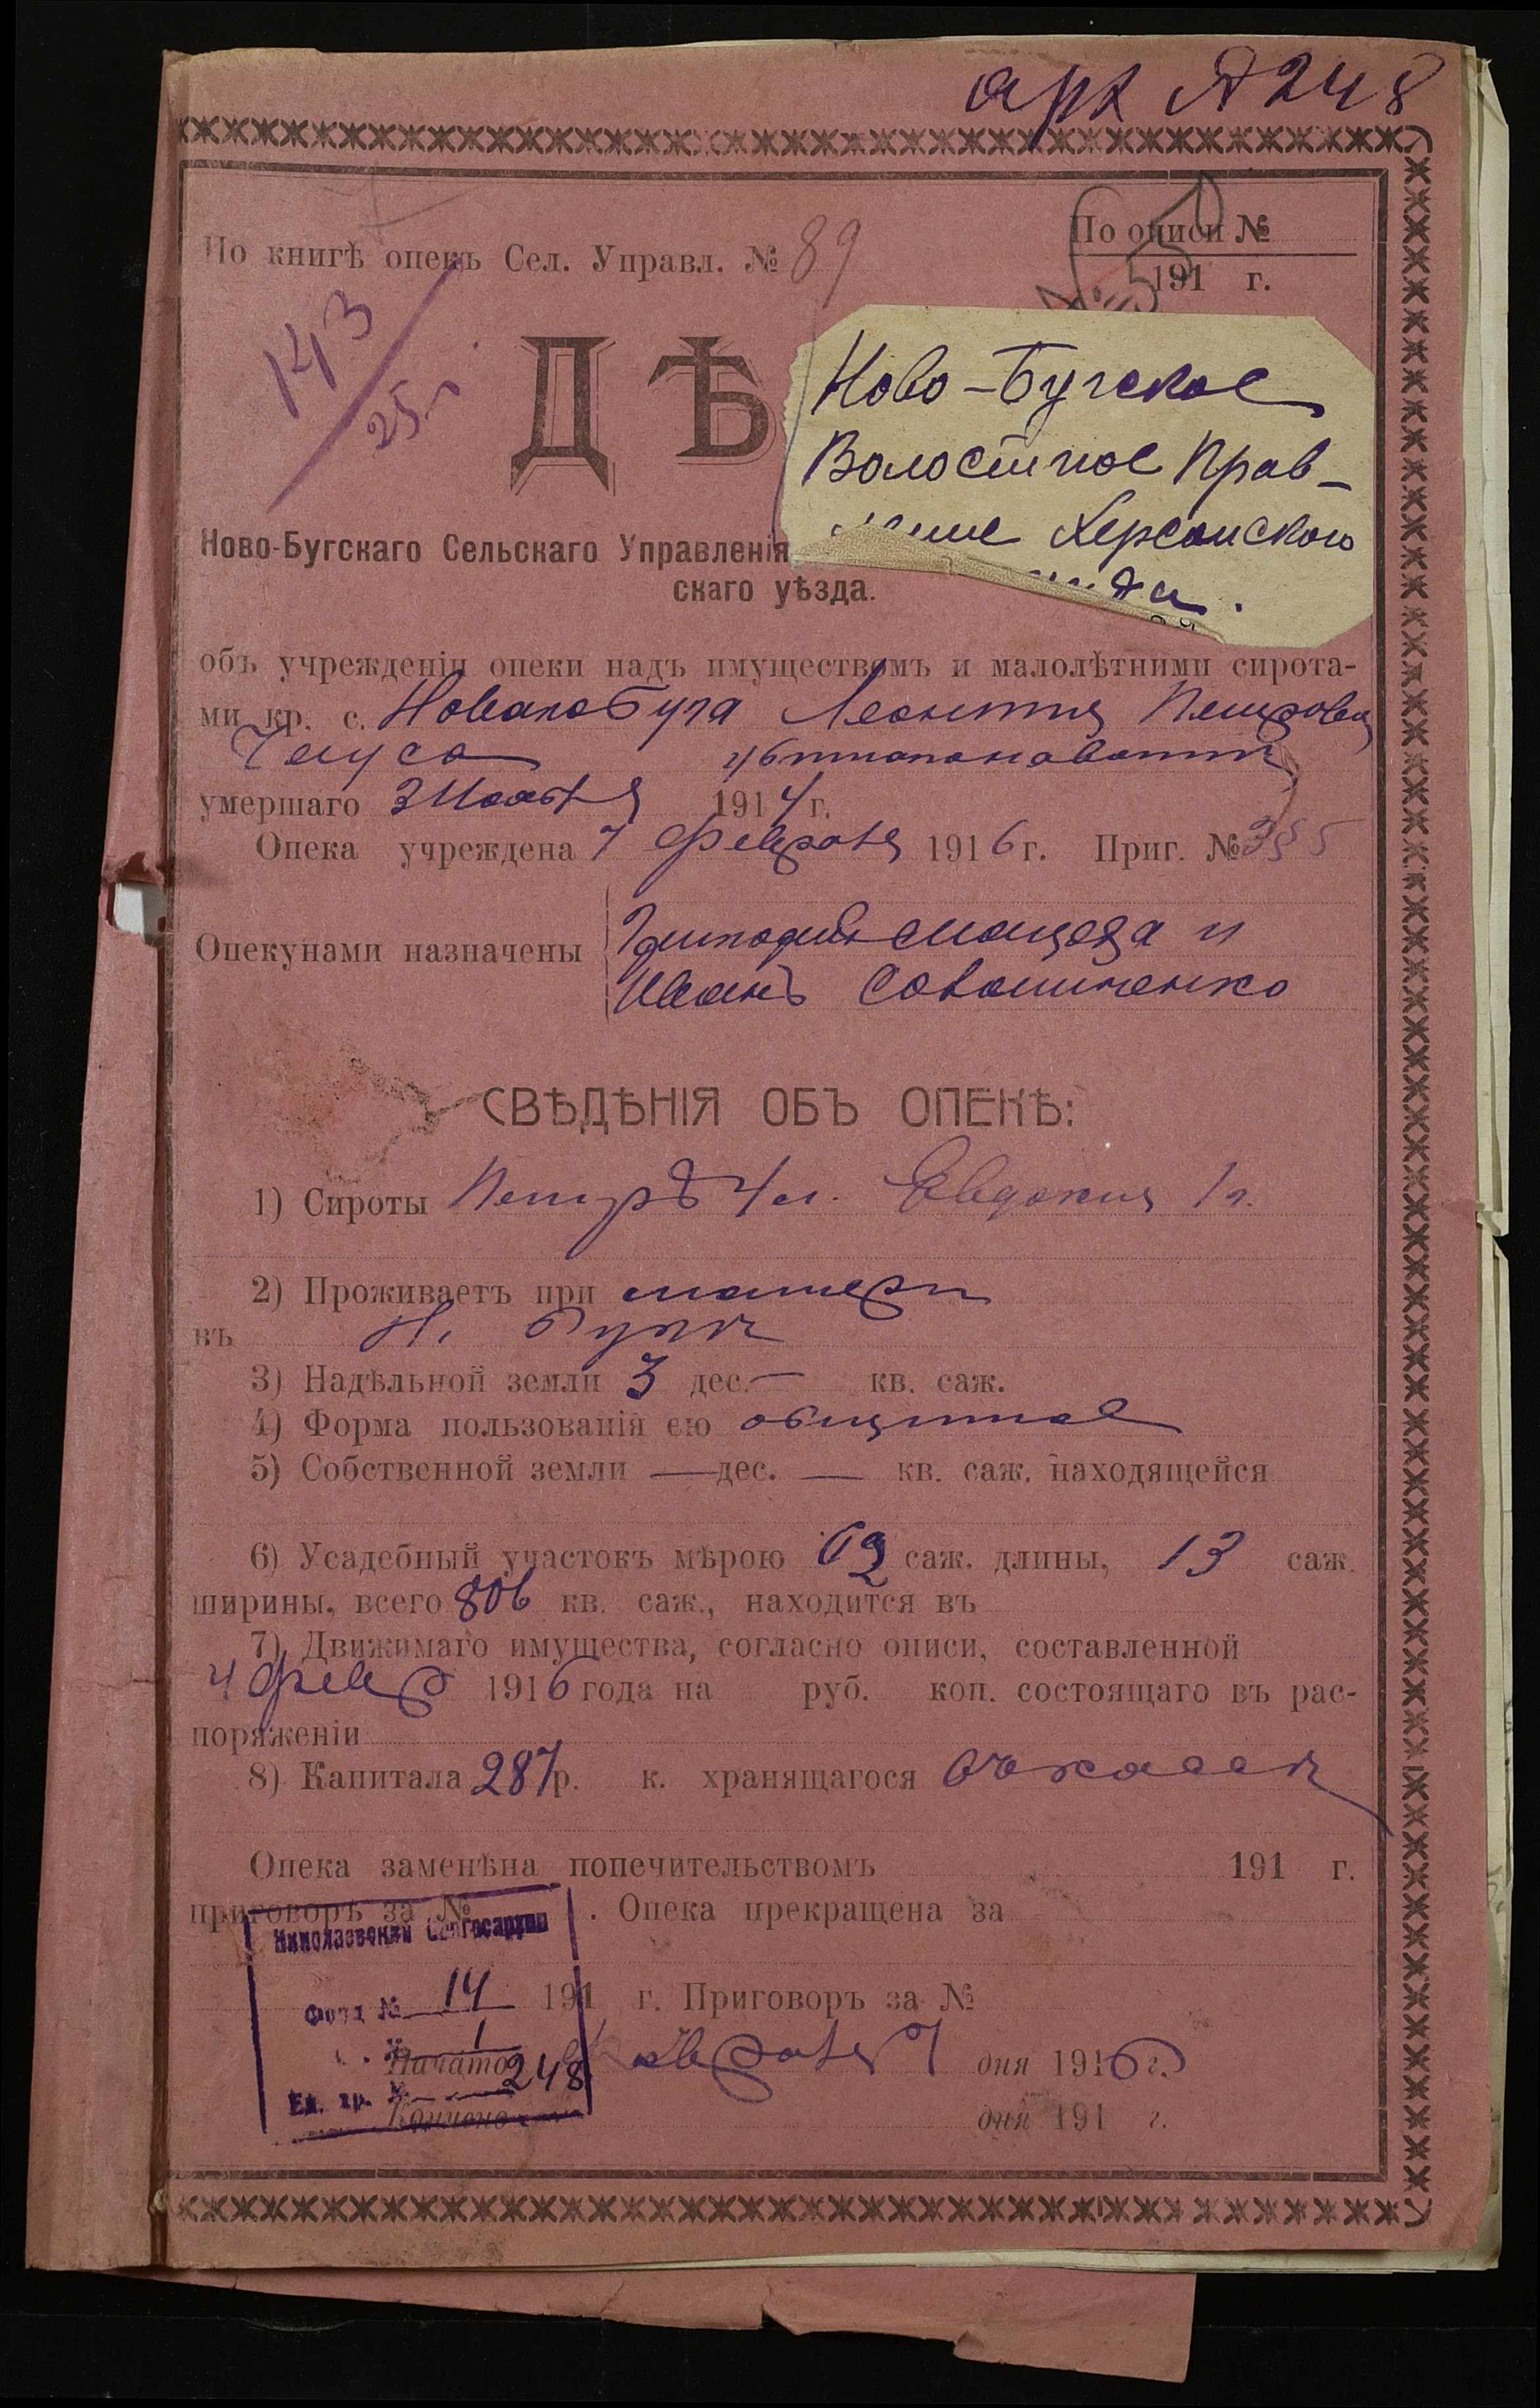 арх № 248
По книгѣ опекъ Сел. Управл. № 89
По описи №
191 г.
143
25
ДѢ
Ново-Бугское
Волостное Прав-
ление Херсонского
Ново-Бугскаго Сельскаго Управленія
скаго уѣзда.
объ учрежденіи опеки надъ имуществомъ и малолѣтними сирота-
ми кр. с. Новаго Буга Леонтія Петрова
умершаго 3 1914 г.
Опека учреждена 7 февраля 1916 г. Приг. № 355
Опекунами назначены
и
Иванъ
СВѢДѢНІЯ ОБЪ ОПЕКѢ:
1) Сироты Петръ 4 л. Евдокия 1 г.
2) Проживаетъ при матери
въ Н. Бугѣ
3) Надѣльной земли 3 дес. — кв. саж.
4) Форма пользованія ею общинное
5) Собственной земли — дес. — кв. саж. находящейся
6) Усадебный участокъ мѣрою 62 саж. длины, 13 саж.
ширины, всего 806 кв. саж., находится въ
7) Движимаго имущества, согласно описи, составленной
4 февр 1916 года на руб. коп. состоящаго въ рас-
поряженіи
8) Капитала 287 р. к. хранящагося
Опека замѣнена попечительствомъ 191 г.
приговоръ за № . Опека прекращена за
Николаевский
Фонд № 14 191 г. Приговоръ за №
1
Начато февраля 7 дня 1916 г.
Ед. хр. № 248
Кончено дня 191 г.